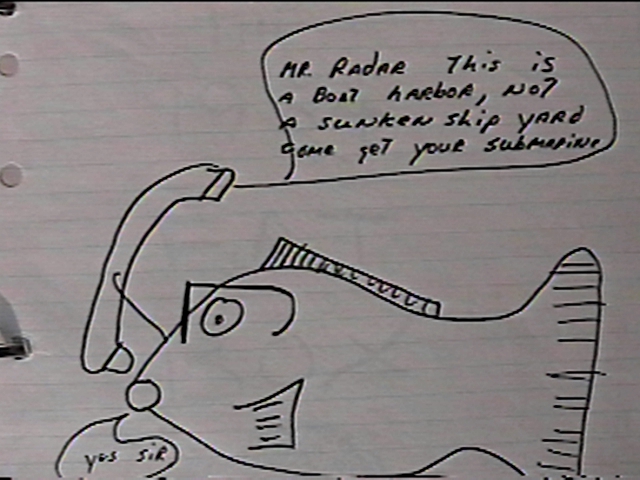 MR. RADAR This is
A BOAT hARBOR, NOT
A SUNKEN ship YARD
Come get your SUBMARINE
yes SIR